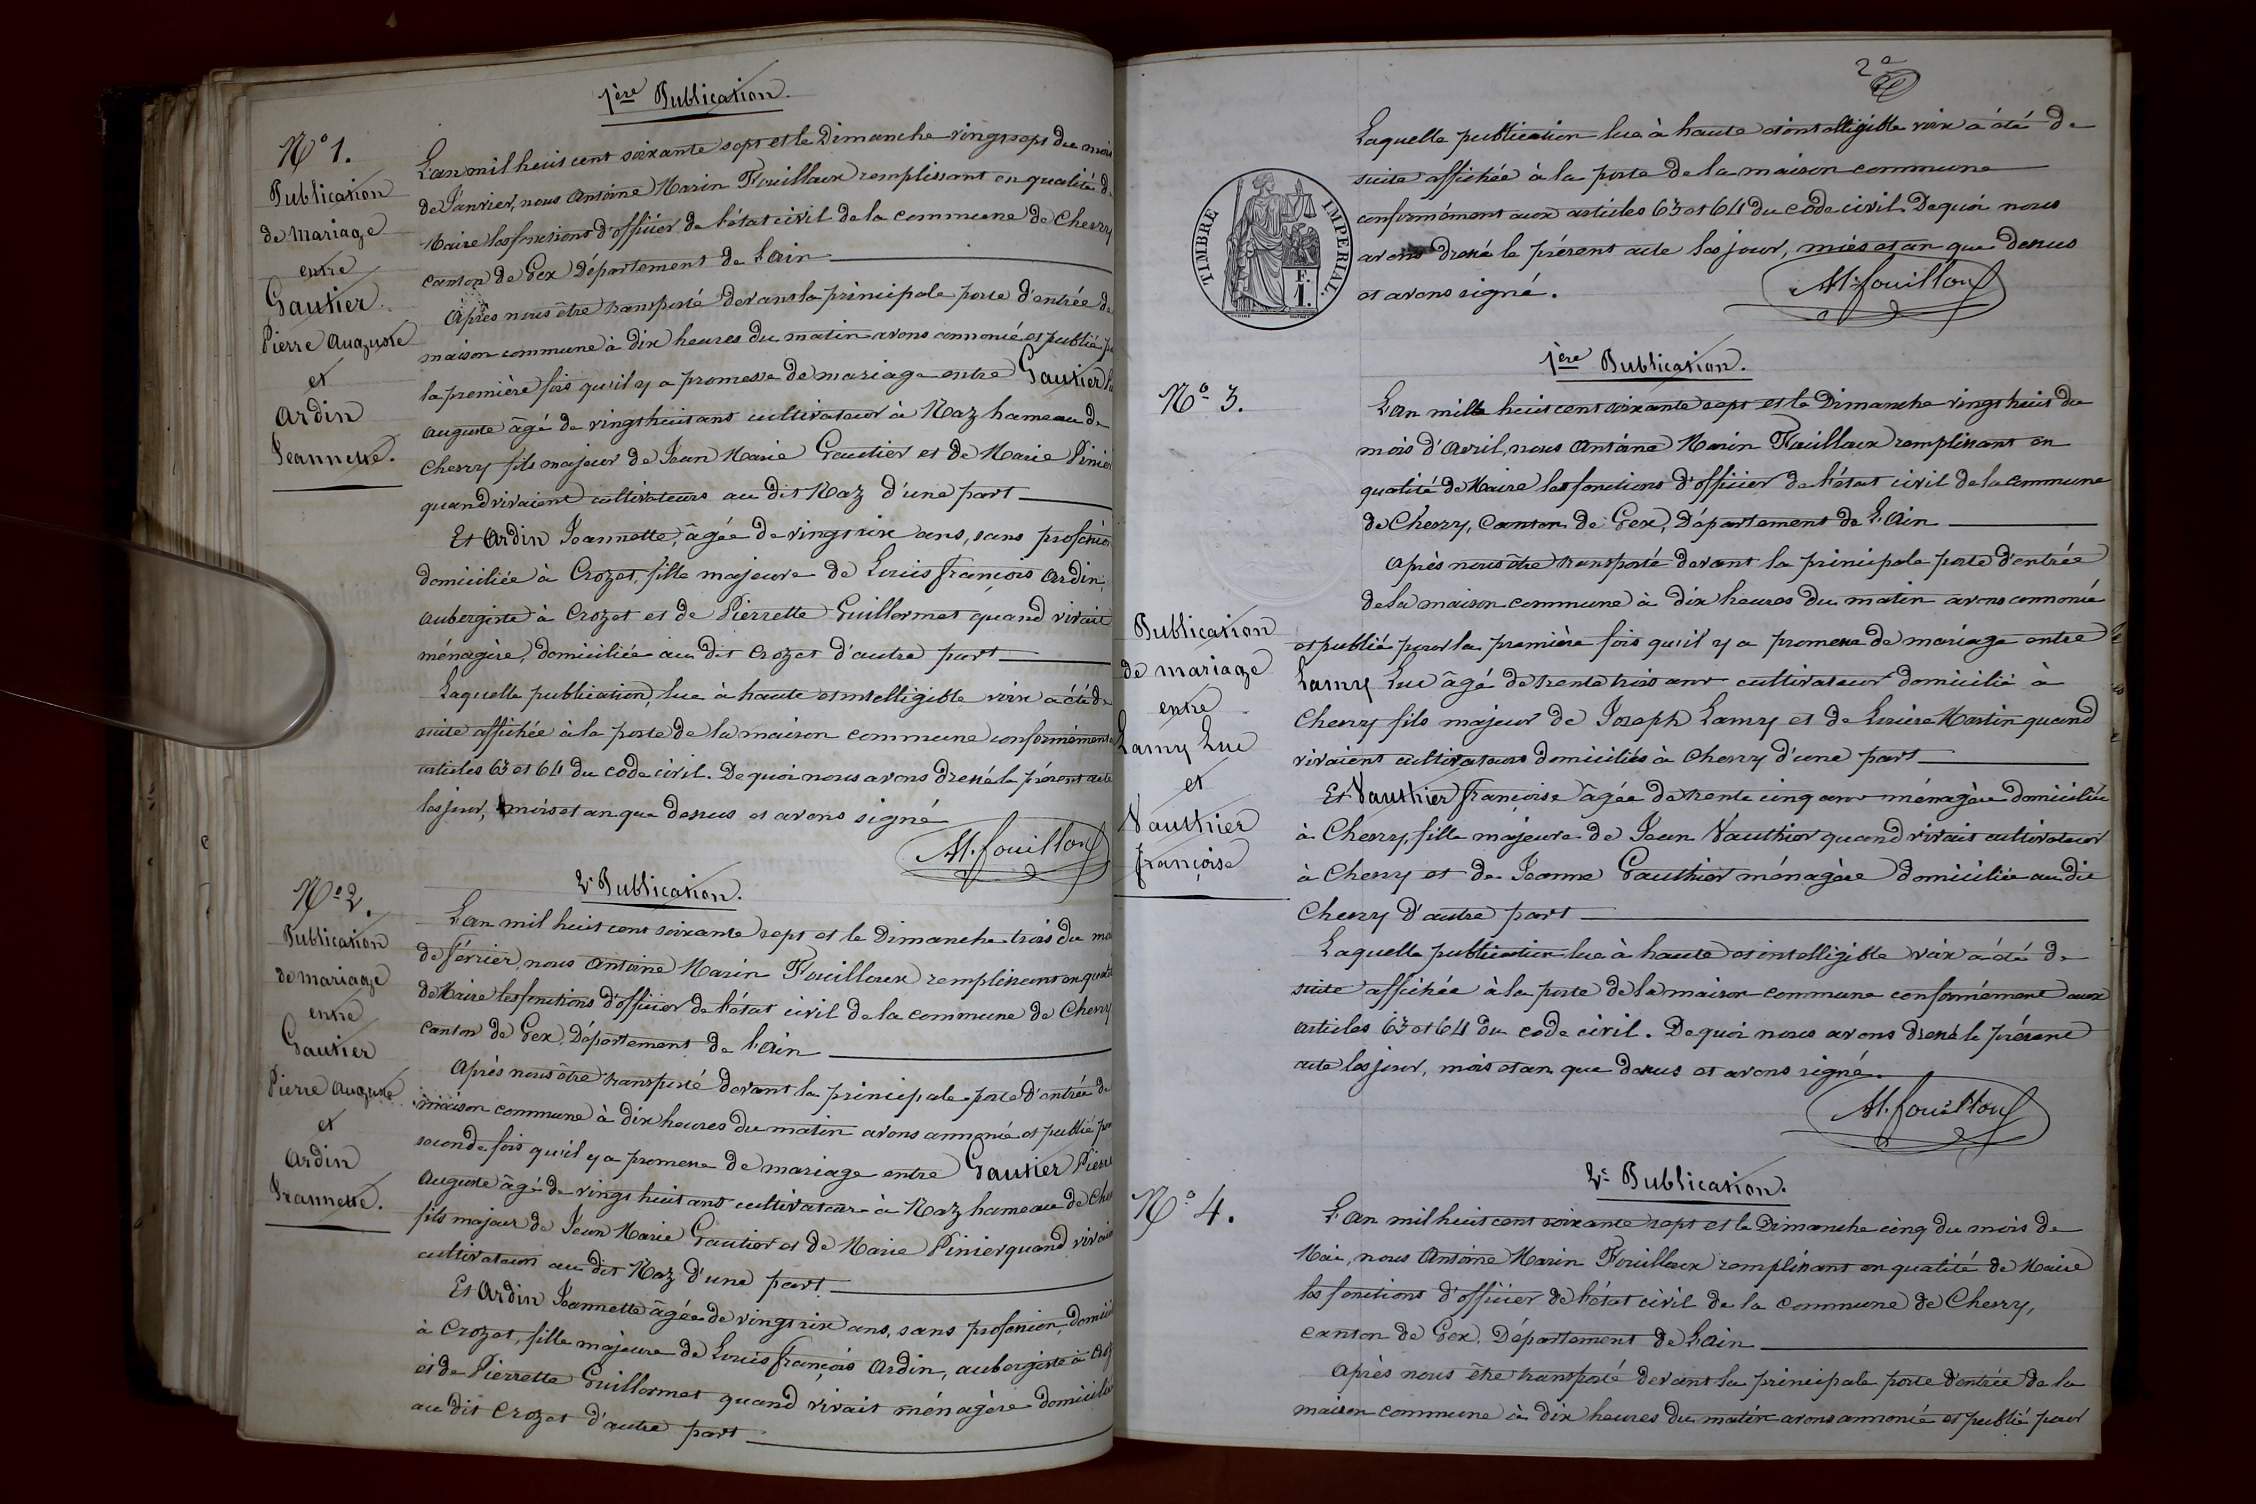 1ère Publication.
N° 1.
Publication
de Mariage
entre
Gautier
Pierre Auguste
et
Ardin
Jeannette.
L'an mil huit cent soixante sept et le Dimanche vingt sept du mois
de Janvier, nous Antoine Marin Fouilloux remplissant en qualité de
Maire les fonctions d'officier de l'état civil de la commune de Chevry
canton de Gex Département de l'Ain
Après nous être transporté devant la principale porte d'entrée de
maison commune à dix heures du matin avons annoncé et publié po
la première fois qu'il y a promesse de mariage entre Gautier
Auguste âgé de vingt huit ans cultivateur à Naz hameau de
Chevry fils majeur de Jean Marie Gautier et de Marie Pinier
quand vivaient cultivateurs au dit Naz d'une part
Et Ardin Jeannette, âgée de vingt six ans, sans profession
domiciliée à Crozet, fille majeure de Louis François Ardin,
aubergiste à Crozet et de Pierrette Guillermet quand vivait
ménagère, domiciliée au dit Crozet d'autre part
Laquelle publication, lue à haute et intelligible voix a été de
suite affichée à la porte de la maison commune conformément
articles 63 et 64 du code civil. De quoi nous avons dressé le présent acte
les jour, mois et an que dessus et avons signé
AM. fouilloux
2e Publication.
N° 2.
Publication
de mariage
entre
Gautier
Pierre Auguste
et
Ardin
Jeannette.
L'an mil huit cent soixante sept et le Dimanche trois du mo
de février, nous Antoine Marin Fouilloux remplissant en qualité
de Maire les fonctions d'officier de l'état civil de la commune de Chevry
canton de Gex, Département de l'Ain
Après nous être transporté devant la principale porte d'entrée de
maison commune à dix heures du matin avons annoncé et publié pour
seconde fois qu'il y a promesse de mariage entre Gautier Pierre
Auguste âgé de vingt huit ans cultivateur à Naz hameau de Chev
fils majeur de Jean Marie Gautier et de Marie Pinier quand vivaien
cultivateurs au dit Naz d'une part
Et Ardin Jeannette âgée de vingt six ans, sans profession, domicil
à Crozet, fille majeure de Louis François Ardin, aubergiste à Croz
et de Pierrette Guillermet quand vivait ménagère domiciliée
au dit Crozet d'autre part
2e
TIMBRE IMPERIAL.
F.
1.
Laquelle publication lue à haute et intelligible voix a été de
suite affichée à la porte de la maison commune
conformément aux articles 63 et 64 du code civil. De quoi nous
avons dressé le présent acte les jour, mois et an que dessus
et avons signé.
AM. fouilloux
1ère Publication.
N° 3.
Publication
de mariage
entre
Lamy Luc
et
Vauthier
françoise
L'an mille huit cent soixante sept et le Dimanche vingt huit du
mois d'Avril, nous Antoine Marin Fouilloux remplissant en
qualité de Maire les fonctions d'officier de l'état civil de la Commune
de Chevry, Canton de Gex, Département de l'Ain
Après nous être transporté devant la principale porte d'entrée
de la maison commune à dix heures du matin avons annoncé
et publié pour la première fois qu'il y a promesse de mariage entre
Lamy Luc âgé de trente trois ans cultivateur domicilié à
Chevry fils majeur de Joseph Lamy et de Louise Martin quand
vivaient cultivateurs domiciliés à Chevry d'une part
Et Vauthier françoise âgée de trente cinq ans ménagère domiciliée
à Chevry, fille majeure de Jean Vauthier quand vivait cultivateur
à Chevry et de Jeanne Gauthier ménagère domiciliée au dit
Chevry d'autre part
Laquelle publication lue à haute et intelligible voix a été de
suite affichée à la porte de la maison commune conformément aux
articles 63 et 64 du code civil. De quoi nous avons dressé le présent
acte les jour, mois et an que dessus et avons signé.
AM. fouilloux
2e Publication.
N° 4.
L'an mil huit cent soixante sept et le Dimanche cinq du mois de
Mai, nous Antoine Marin Fouilloux remplissant en qualité de Maire
les fonctions d'officier de l'état civil de la Commune de Chevry,
canton de Gex, Département de l'Ain
Après nous être transporté devant la principale porte d'entrée de la
maison commune à dix heures du matin avons annoncé et publié pour